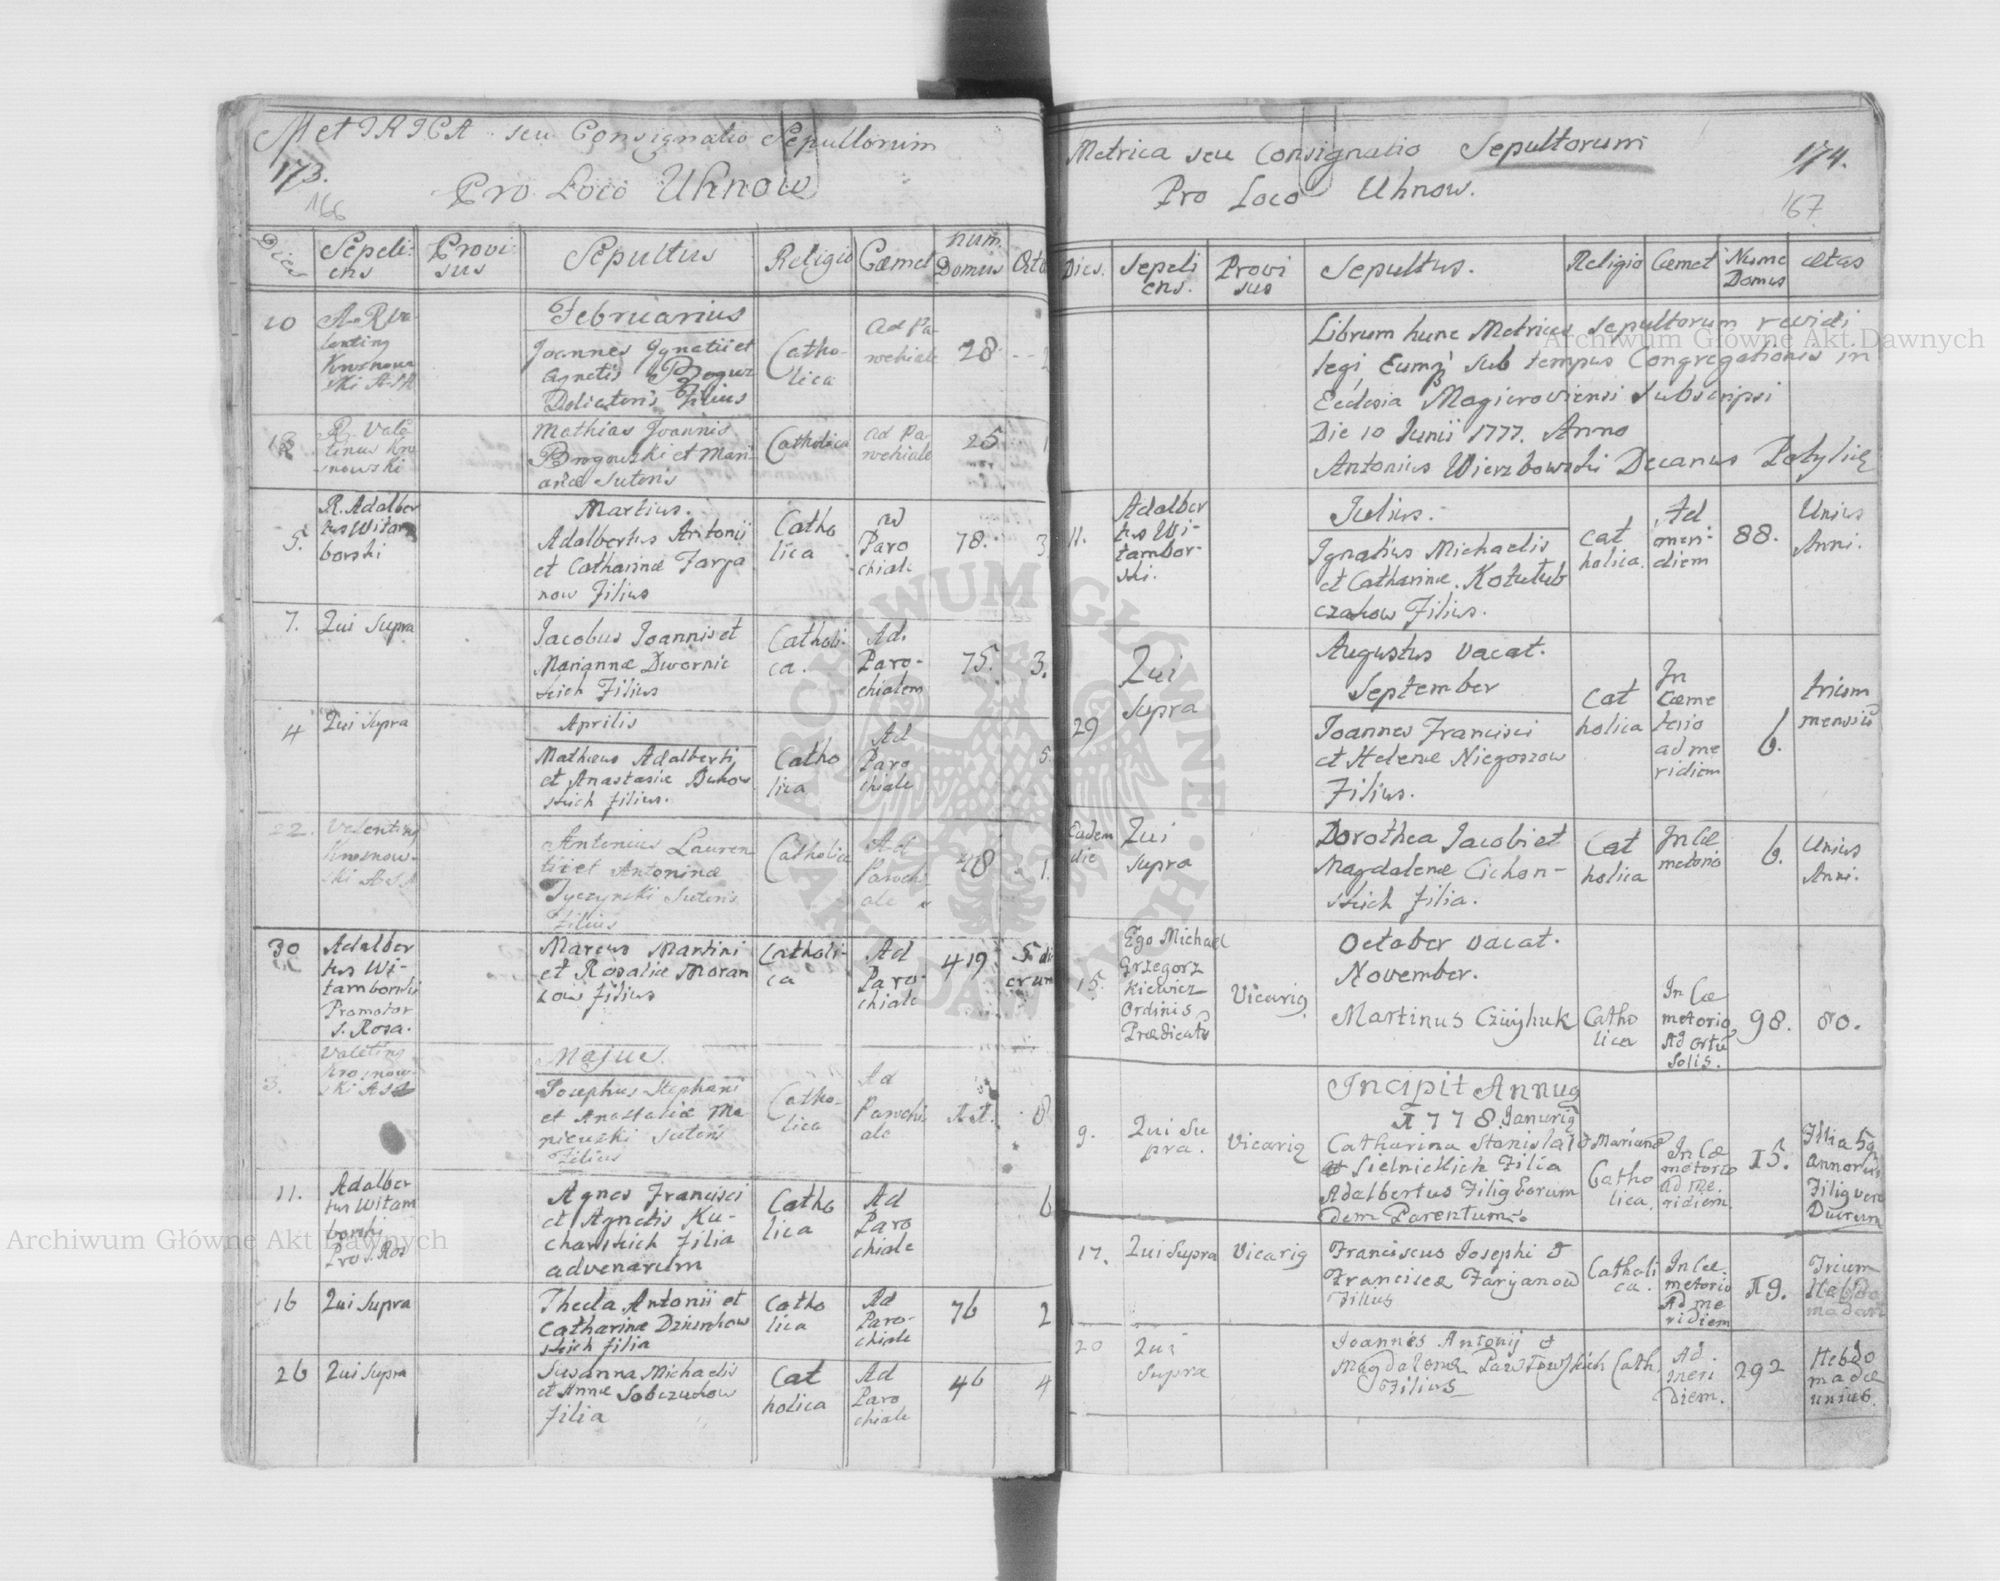 MetRICA seu Consignatio Sepultorum
173.
166
Pro Loco Uhnow
Dies
Sepeliens
Provisus
Sepultus
Religio
Cæmet
num. Domus
Februarius
10
A. R. Va-
lenting
Krosnow
ski
Joannes Ignatii et
Agnetis
Doliatoris Filius
Catho-
lica
ad Pa-
rochiale
28
R. Vale
tinus Kro
snowski
Mathias Joannis
et Mari
anæ Sutoris
Catholica
ad Pa-
rochiale
25
1
Martius.
5.
R. Adalber
tus Witam
borski
Adalbertus Antonii
et Catharinæ Farya
now Filius
Catho
lica
ad
Paro
chiale
78.
3
7.
Qui Supra
Jacobus Joannis et
Mariannæ Dwornic
kich Filius
Catholi-
ca.
Ad.
Paro-
chialem
75.
3.
Aprilis
4
Qui Supra
Matheus Adalberti
et Anastasiæ Bukow
skich Filius.
Catho
lica
Ad
Paro
chiale
5.
22.
Valenting
Krosnow-
ski
Antonius Lauren
tii et Antoninæ
Tyczynski Sutoris
Filius
Catholica
Ad
Parochi-
ale
48
1.
30
Adalber
tus Wi-
tamborski
Promotor
S. Rosa.
Marcus Martini
et Rosaliæ Moran
zow Filius
Catholi-
ca
Ad
Paro-
chiale
419
5 di
erum
Majus
3.
Valeting
Krosnow-
ski
Josephus Stephani
et Anastasiæ Ma
niewski Sutoris
Filius
Catho-
lica
Ad
Parochi-
ale
8
11.
Adalber
tus Witam
borski
Pro S. Ros
Agnes Francisci
et Agnetis Ku-
charskich Filia
advenarum
Catho
lica
Ad
Paro
chiale
6
16
Qui Supra
Thecla Antonii et
Catharinæ
skich Filia
Catho
lica
Ad
Paro-
chiale
76
2
26
Qui Supra
Susanna Michaelis
et Annæ Sobczukow
Filia
Cat
holica
Ad
Paro
chiale
46
4
Metrica seu Consignatio Sepultorum
174.
167
Pro Loco Uhnow.
Dies.
Sepeli
ens.
Provi
sus
Sepultus.
Religio
Cæmet
Nume
Domus
ætas
Librum hunc Metrices Sepultorum revidi
legi, Eumq sub tempus Congregationis in
Ecclesia Magieroviensi Subscripsi
Die 10 Junii 1777. Anno
Antonius Wierzbowski Decanus Potylic
Julius.
11.
Adalber
tus Wi-
tambor-
ski.
Ignatius Michaelis
et Catharinæ. Kotulub
czakow Filius.
Cat
holica.
Ad
meri-
diem
88.
Unius
Anni.
Augustus vacat.
September
29
Qui
Supra
Joannes Francisci
et Helenæ Niegoszow
Filius.
Cat
holica
In
Cæme
terio
ad me
ridiem
6.
trium
mensiu
Eadem
die
Qui
Supra
Dorothea Jacobi et
Magdalenæ Cichon-
skich Filia.
Cat
holica
In Cæ
meterio
6.
Unius
Anni.
October vacat.
November.
15.
Ego Michael
Grzegorz
kiewicz
Ordinis
Prædicato
Vicarig
Martinus Czwyhuk
Catho
lica
In Cæ
meterio
Ad ortu
Solis.
98.
80.
Incipit Annug
1778. Januarig
9.
Qui Su
pra.
Vicarig
Catharina Stanislai & Marianæ
Sielnickich Filia
Adalbertus Filig Eorum
dem Parentum.
Catho
lica.
In Cæ
meterio
ad me-
ridiem
15.
Filia 5q
annorum
Filig vero
Duorum
17.
Qui Supra
Vicarig
Franciscus Josephi &
Franciscæ Faryanow
Filius
Catholi
ca.
In Cæ-
meterio
Ad me
ridiem
19.
Trium
Hebdo
madaru
20
Qui
Supra
Joannes Antonij &
Magdalenæ Pawlowskich
Filius
Cath
Ad.
Meri
Diem.
292
Hebdo
madæ
unius.
Archiwum Główne Akt Dawnych
Archiwum Główne Akt Dawnych
ARCHIWUM GŁÓWNE AKT DAWNYCH